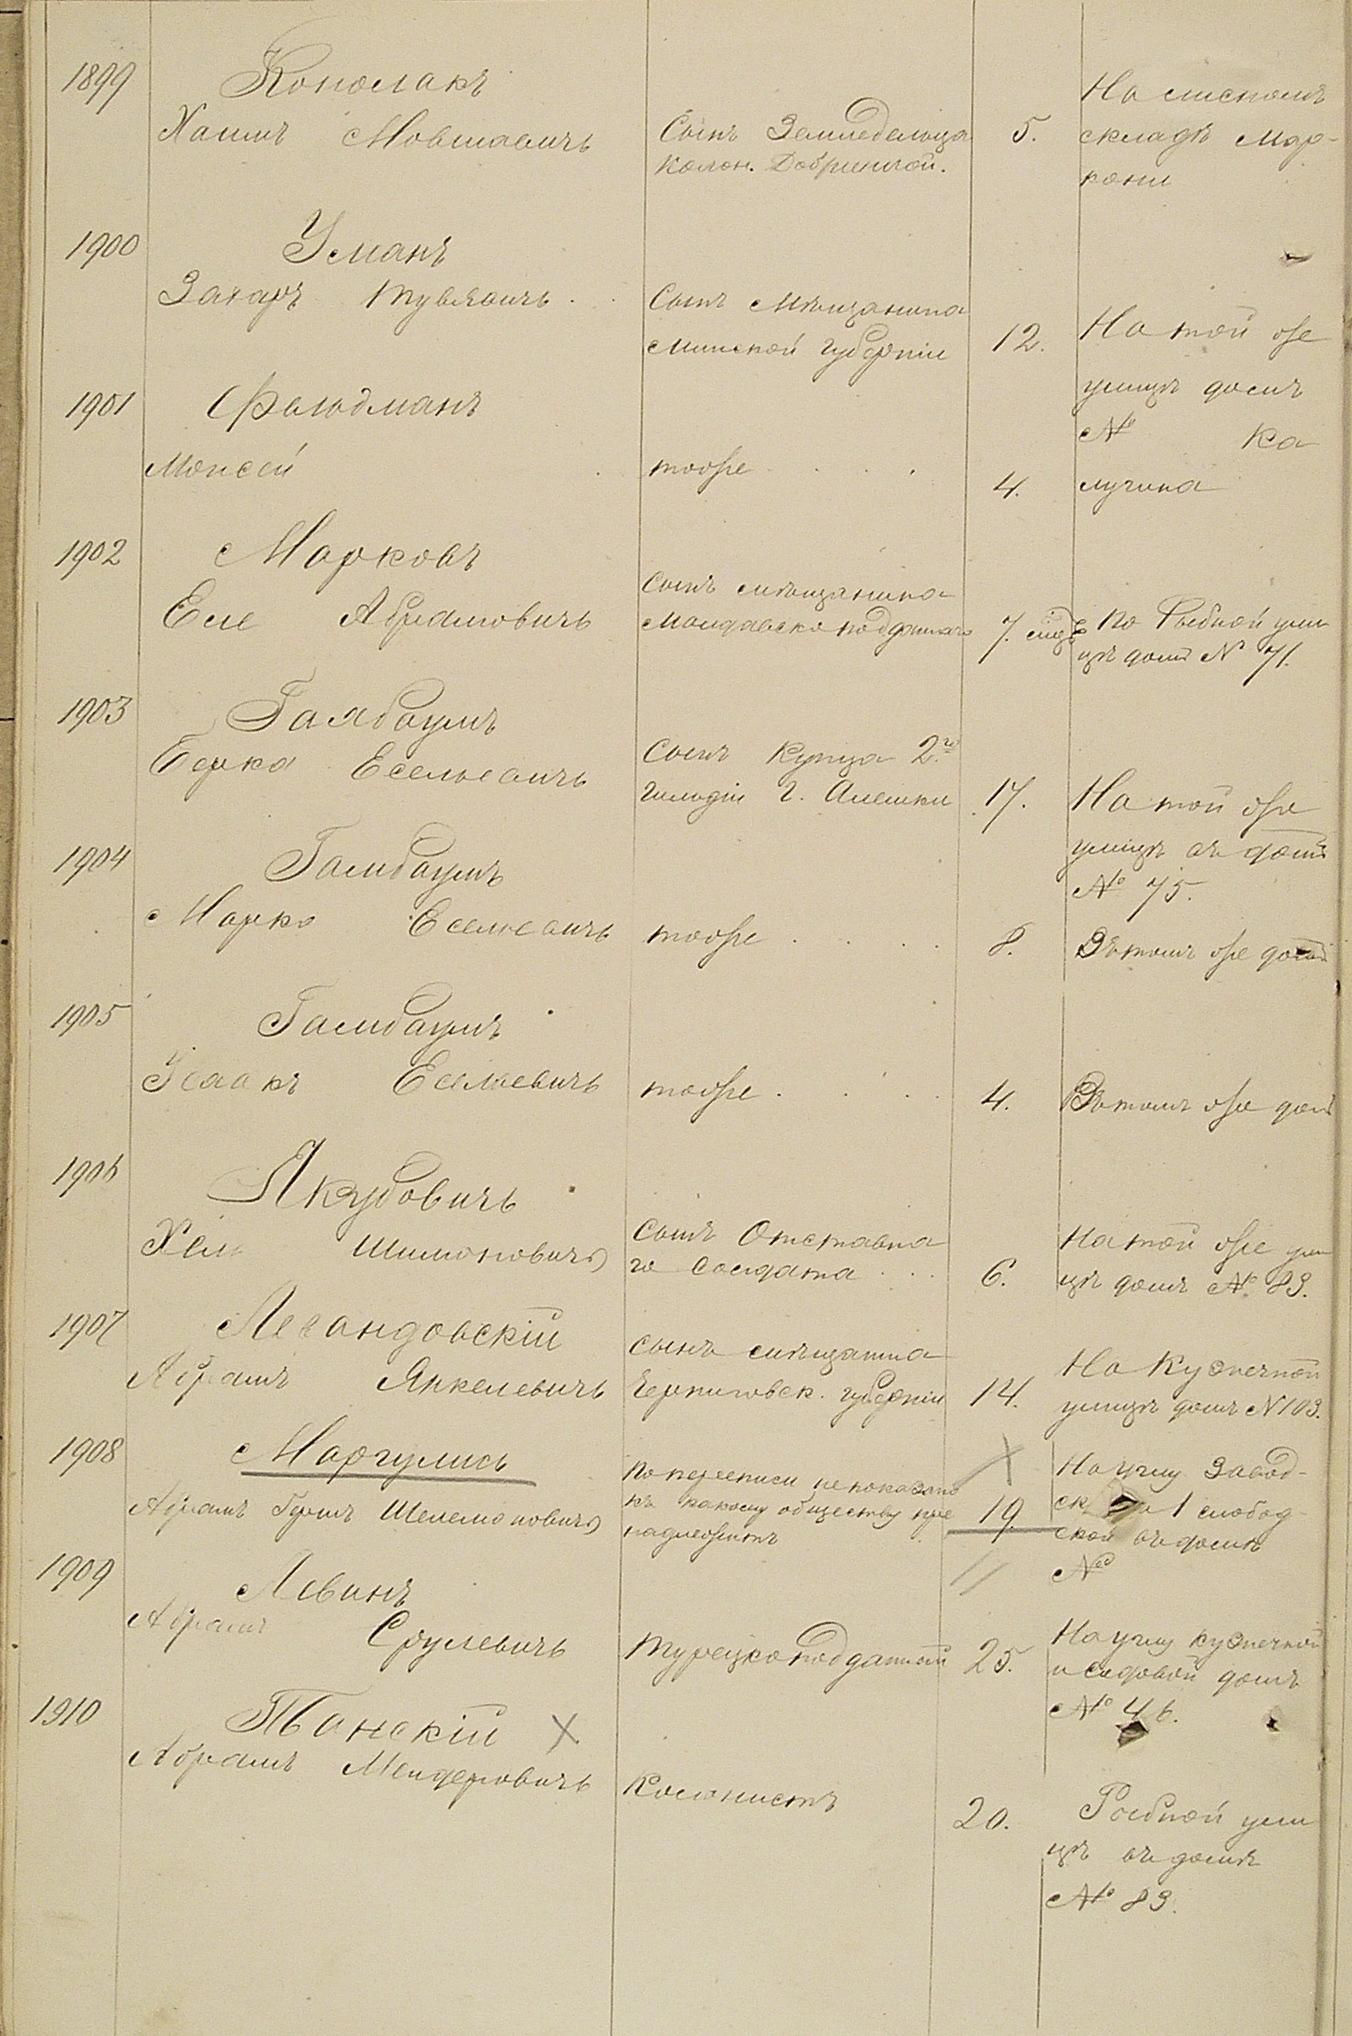 1899 Кополакъ
Хаимъ Мовшавичъ Сынъ Земледельца 5. На лисномъ
колон. Добринькой. складѣ Мар-
кони
1900 Уманъ
Захаръ Тувьевичъ Сынъ Мѣщанина
Минской губерніи 12. На той же
улицѣ домъ
№ Ка
лугина
1901 Фельдманъ
Моисей тоже 4.
1902 Марковъ
Еле Абрамовичъ сынъ мѣщанина
Молдавско подданнаго 7. мѣс По Рыбной ули
цѣ домъ № 71.
1903 Галбаумъ
Берка Еселевичъ Сынъ Купца 2й
гильдіи г. Алешки 17. На той же
улицѣ въ домѣ
№ 75.
1904 Галмбаумъ
Марко Еселевичъ тоже 8. Въ томъ же домѣ
1905 Галмбаумъ
Исаакъ Еселевичъ тоже 4. Въ томъ же домѣ
1906 Якубовичъ
Шимоновичъ сынъ Отставна
го солдата 6. На той же ули
цѣ домъ № 83.
1907 Левандовскій
Абрамъ Янкелевичъ сынъ мѣщанина
Черниговск. губерніи 14. На Кузнечной
улицѣ домъ № 103.
1908 Маргулисъ
Абрамъ Гершъ Шелемоновичъ по переписи не показано
къ какому обществу при
надлежитъ 19. На углу Завод-
ск 1 слобод-
ской въ домѣ
№
1909 Левинъ
Абрамъ Срулевичъ Турецкоподданный 25. На углу Кузнечной
и Садовой домъ
№ 46.
1910 Танскій
Абрамъ Мендеровичъ Колонистъ 20. Рыбной ули
цѣ въ домѣ
№ 83.